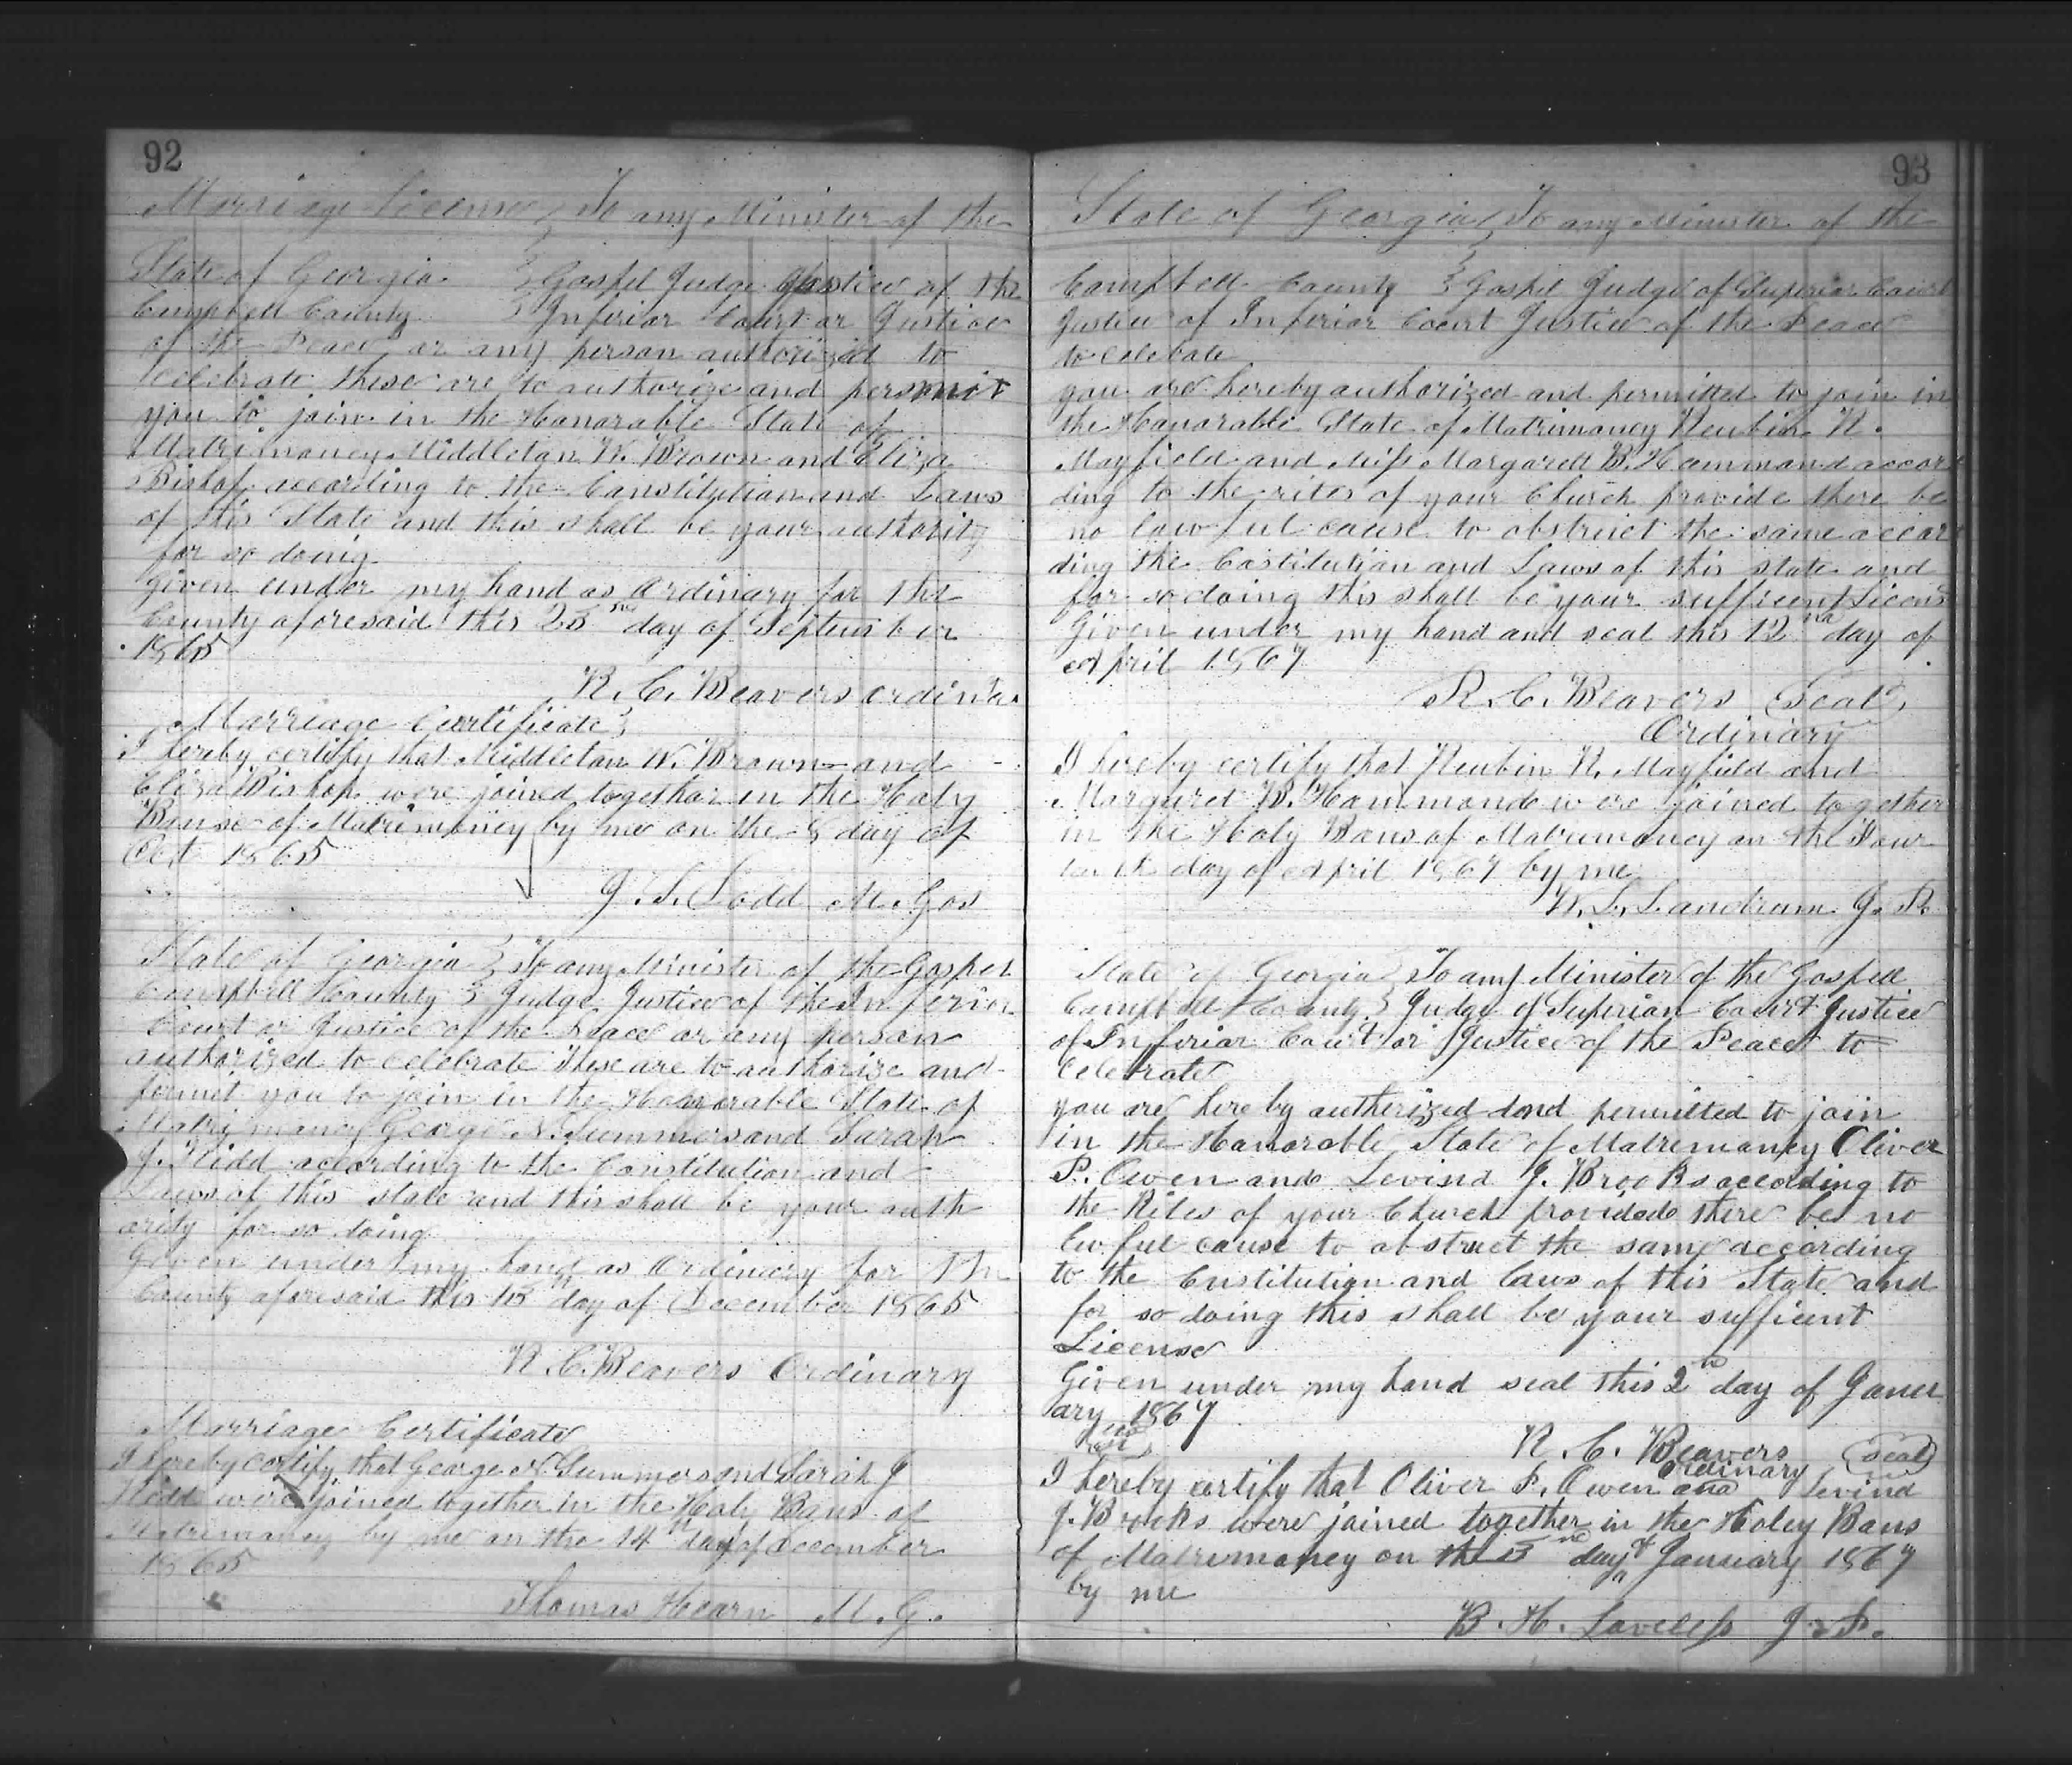 92
Marriage License } To any Minister of the
State of Georgia } Gospel Judge Justice of the
Campbell County } Inferior Court or Justice
of the Peace or any person authorized to
celebrate these are to authorize and permit
you to join in the Honorable State of
Matrimoney Middleton W. Brown and Eliza
Bishop according to the Constitution and Laws
of this State and this shall be your authority
for so doing
given under my hand as Ordinary for the
County aforesaid this 23 day of September
1865
R. C. Beavers Ordinary
Marriage Certificate }
I hereby certify that Middleton W. Brown and
Eliza Bishop were joined together in the Holy
Banse of Matrimoney by me on the 8 day of
Oct 1865
J. S. Dodd M. Gos
State of Georgia } To any Minister of the Gospel
Campbell County } Judge Justice of the Inferior
Court or Justice of the Peace or any person
authorized to celebrate These are to authorize and
permit you to join in the Honorable State of
Matrimoney George N. Summers and Sarah
J. according to the Constitution and
Laws of this state and this shall be your auth
ority for so doing
Given under my hand as Ordinary for The
County aforesaid this 13 day of December 1865
R. C. Beavers Ordinary
Marriage Certificate
I hereby certify that George N. Summers and Sarah J
were joined together in the Holy Bans of
Matrimoney by me on the 14th day of December
1865
Thomas Hearn M. G.
93
State of Georgia } To any Minister of the
Campbell County } Gospel Judge of Superior Court
Justice of Inferior Court Justice of the Peace
to celebate
you are hereby authorized and permitted to join in
the Honorable State of Matrimoney Reubin R.
Mayfield and Miss Margarett B. Hammond accor
ding to the rites of your Church provide there be
no lawful cause to obstruct the same accor
ding the Constitution and Laws of this state and
for so doing this shall be your sufficent License
Given under my hand and seal this 12 day of
April 1867
R. C. Beavers (Seal)
Ordinary
I hereby certify that Reubin R. Mayfield and
Margaret B. Hammond were joined together
in the Holy Bans of Matrimoney on the Four
teenth day of April 1867 by me
W. L. Landrum J. P.
State of Georgia } To any Minister of the Gospell
Campbell County } Judge of Superior Court Justice
of Inferior Court or Justice of the Peace to
Celebrate
you are hereby autherized and permitted to join
in the Honorable State of Matremoney Oliver
P. Owen and Levind J. Brooks according to
the Rites of your Church provided there be no
lawful cause to obstruct the same according
to the Constitution and Laws of this State and
for so doing this shall be your sufficent
License
Given under my hand seal this 2 day of Janu
ary 1867
R. C. Beavers (seal)
Ordinary
I hereby certify that Oliver P. Owen and Levind
J. Brooks were joined together in the Holey Bans
of Matremoney on the 3 day of January 1867
by me
B. H. Loveless J. P.